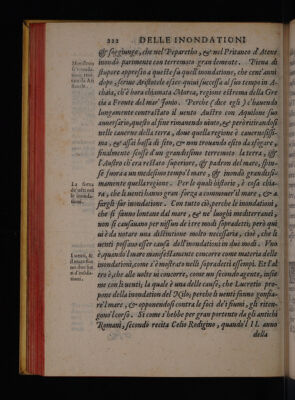 222 DELLE INONDATIONI
& soggiunge, che nel Peparetho, & nel Pritaneo d'Atene
inondò parimente con terremoto gran
stupore appresso a queste fu quell'inondatione, che cent'anni
dopo, scriue Aristotele esser quiui successa al suo tempo in A-
chaia, ch'è hora chiamata Morea, regione estrema della Gre
cia a Fronte del mar Ionio. Perche (dice egli) c'hauendo
lungamente contrastato il uento Austro con Aquilone suo
auuersario, questo al fine rimanendo uinto, & peruertiuandosi
nelle cauerne della terra, doue quella regione è cauernosissi-
ma, & assai bassa di sito, & non trouando esito da sfogare,
finalmente scosse d'un grandissimo terremoto la terra, &
l'Austro ch'era restato superiore, & padron del mare, spin-
se fuora a un medesimo tempo'l mare, & inondò grandissi-
mamente quella regione. Per le quali historie, è cosa chia-
ra, che li uenti hanno gran forza a commouer'il mare, & a
far gli sur inondatione. Con tutto ciò, perche le inondationi,
che si fanno lontane dal mare, & ne' luoghi mediterranei,
non si causauano per nissun de i tre modi sopradetti, però qui
ui è da notare una distintione molto necessaria, cioè, che li
uenti possano esser causa dell'inondationi in due modi. Vno
è, quando'l mare manifestamente concorre come materia delle
inondationi, come s'è mostrato nelli sopradetti essempi. Et l'al
tro è, che alle uolte ui concorre, come un secondo agente, insie
me con li uenti; la quale è una delle cause, che Lucretio pro-
pone della inondation del Nilo; perche li uenti fanno gonfia-
re'l mare, & opponendosi contra le foci de' fiumi, gli riten-
gono'l corso. Si come s'hebbe per gran portento da gli antichi
Romani, secondo recita Celio Redigino, quand'l II. anno
della
La forza
de' uenti
le inonda-
tioni.
Lucret. &